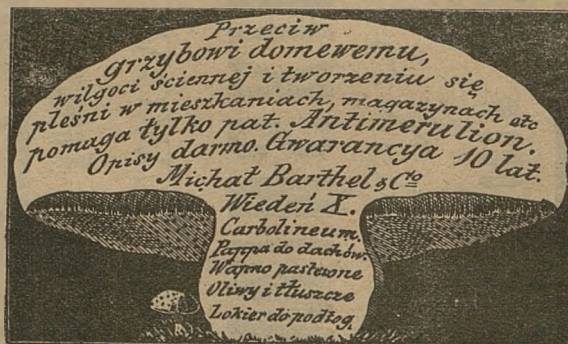 Przeciw
grzybowi domewemu,
wilgoci ściennej i tworzeniu się
pleśni w mieszkaniach, magazynach etc
pomaga tylko pat. Antimerulion.
Opisy darmo. Gwarancya 10 lat.
Michał Barthel & Cⁱᵒ
Wiedeń X.
Carbolineum.
Pappa do dachów.
Wapno pastewne
Oliwy i tłuszcze
Lokier do podłog.